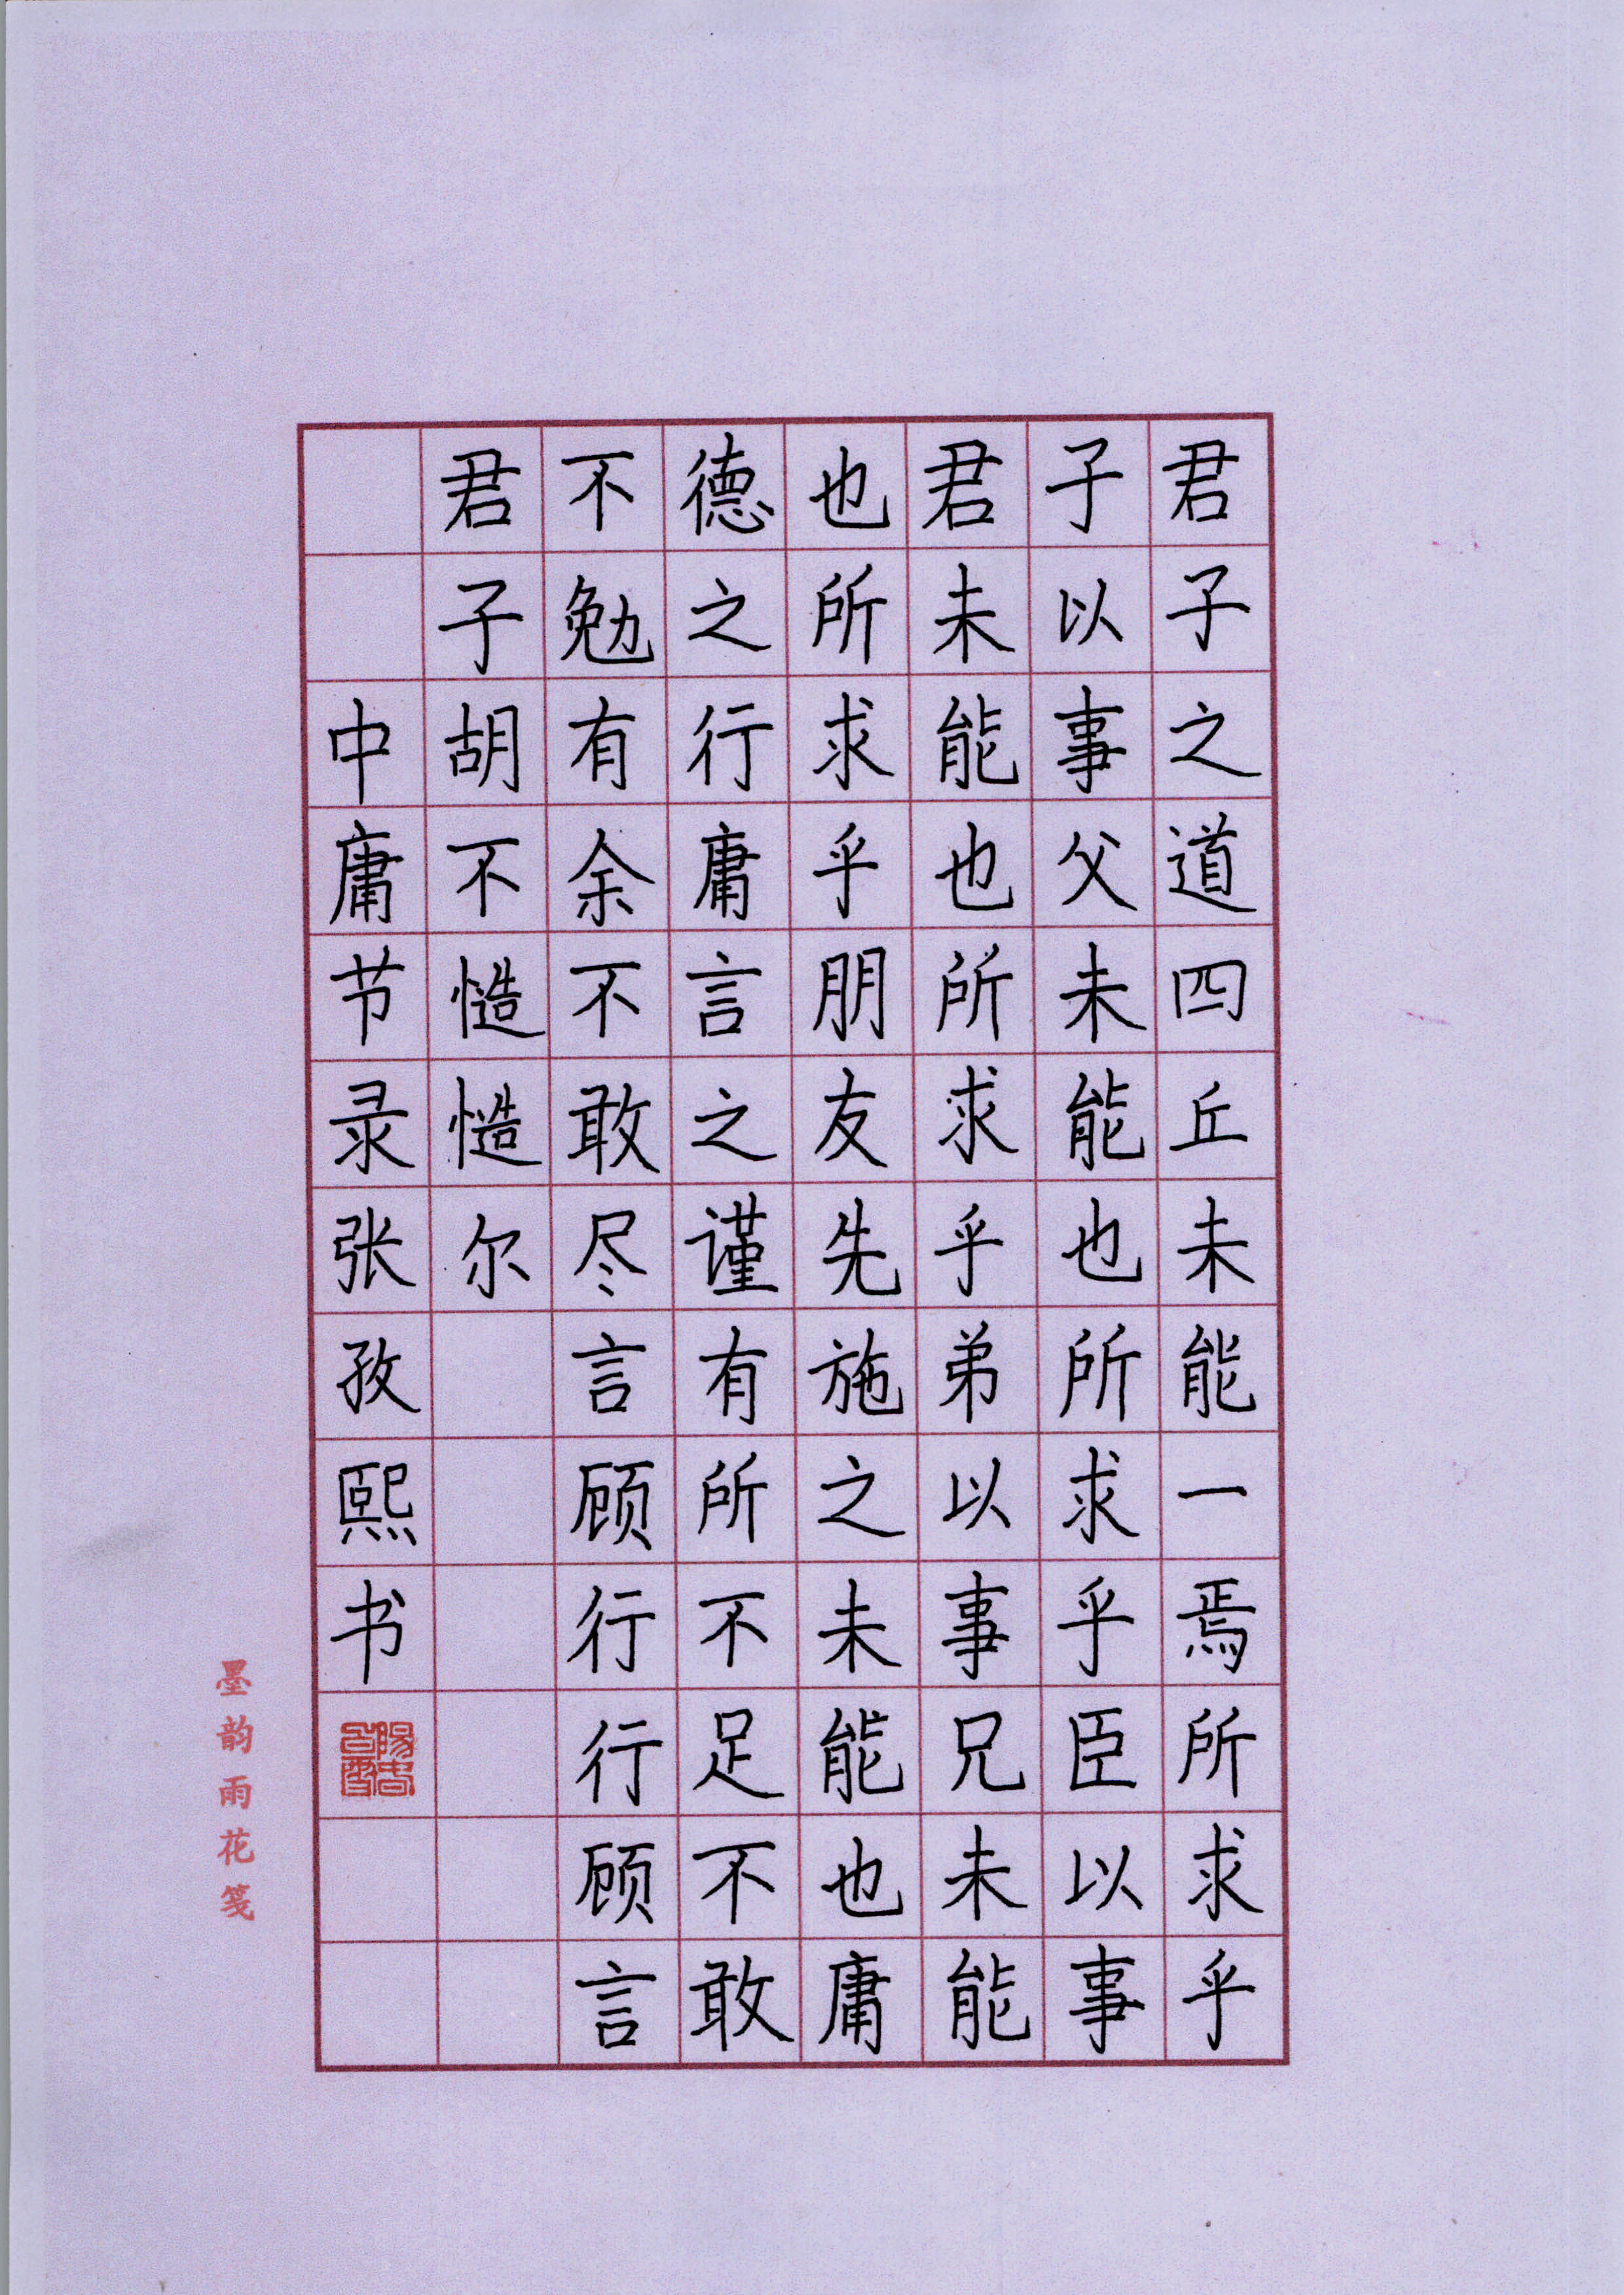 君子之道四丘未能一焉所求乎
子以事父未能也所求乎臣以事
君未能也所求乎弟以事兄未能
也所求乎朋友先施之未能也庸
德之行庸言之谨有所不足不敢
不勉有余不敢尽言顾行行顾言
君子胡不慥慥尔
中庸节录张孜熙书
墨韵雨花笺